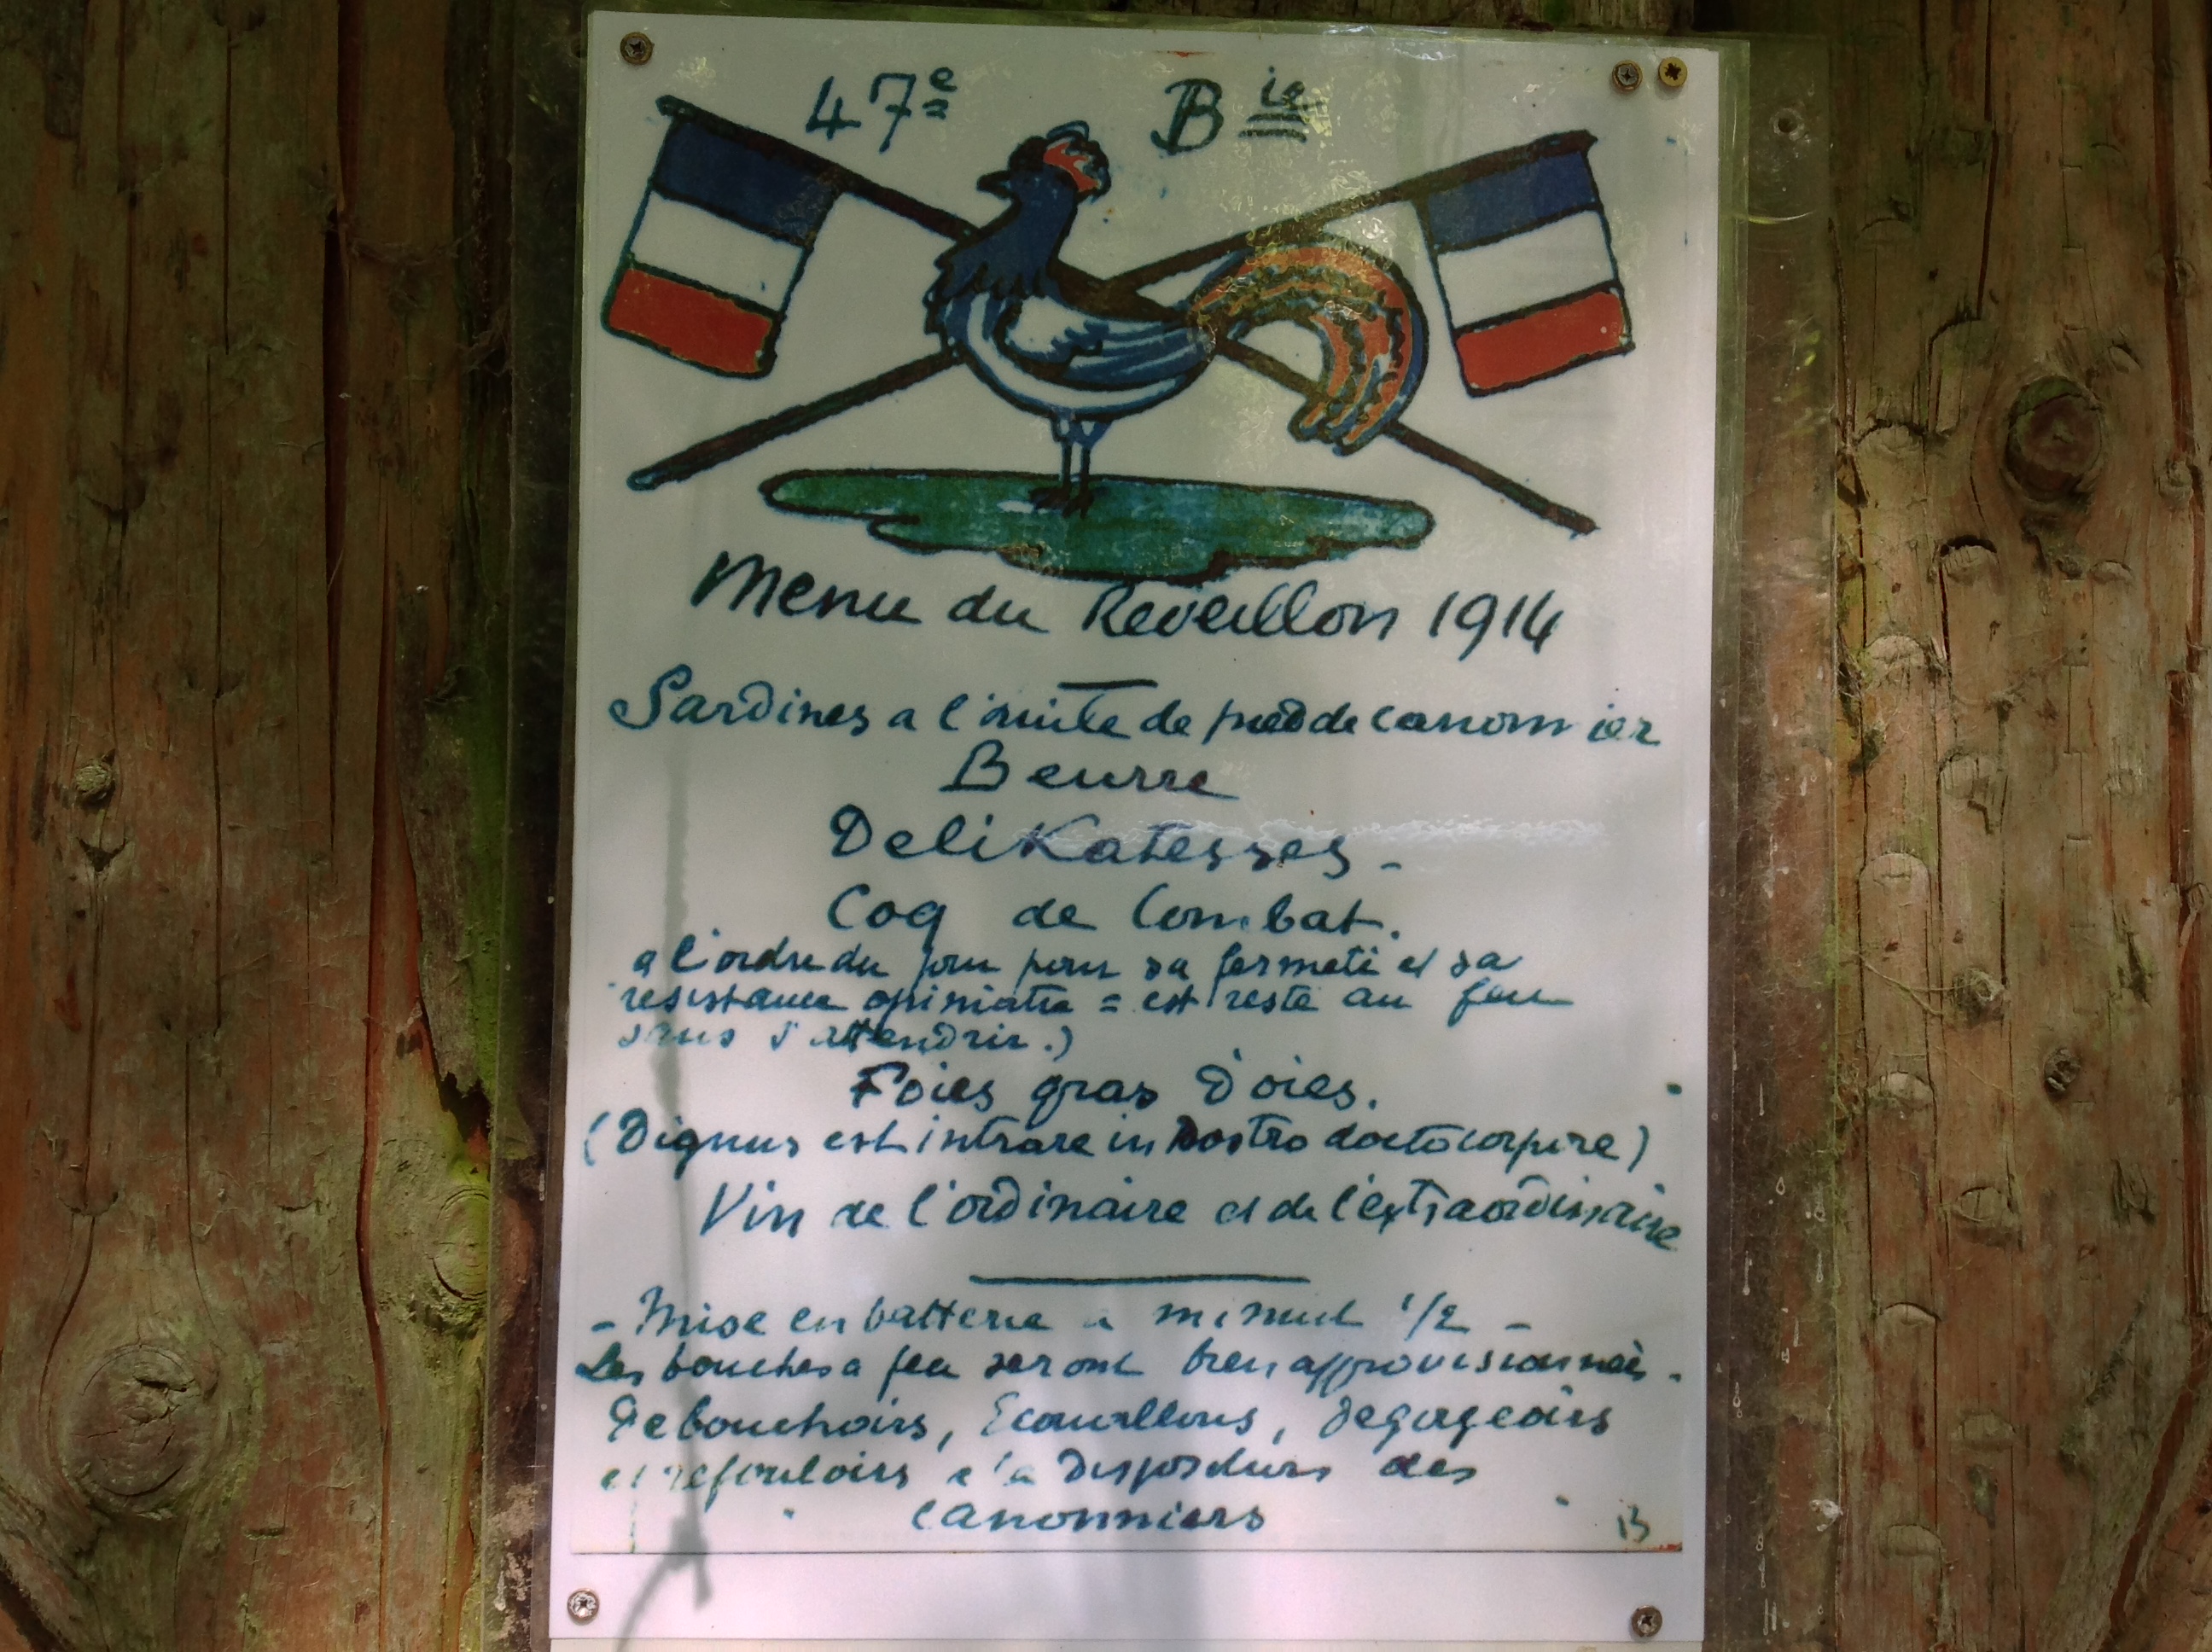 47e Bie
Menu du Reveillon 1914
Sardines a l'huile de pied de canonnier
Beurre
Delikatesses -
Coq de Combat.
a l'ordre du jour pour sa fermeté et sa
resistance opiniatre = est resté au feu
sans s'attendrir.)
Foies gras d'oies.
(Dignus est intrare in nostro docto corpore)
Vin de l'ordinaire et de l'extraordinaire
- Mise en batterie a minuit 1/2 -
Les bouches a feu seront bien approvisionnées.
Debouchoirs, Ecouvillons, degorgeoirs
et refouloirs a la disposition des
canonniers